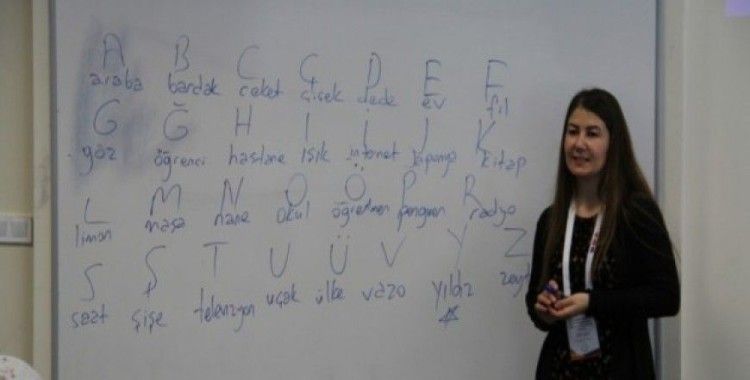 A B C Ç D E F
araba bardak ceket çiçek dede ev fil
G Ğ H I İ J K
göz öğrenci hastane ışık internet japonya kitap
L M N O Ö P R
limon masa nane okul öğretmen penguen radyo
S Ş T U Ü V Y Z
saat şişe televizyon uçak ülke vazo yıldız